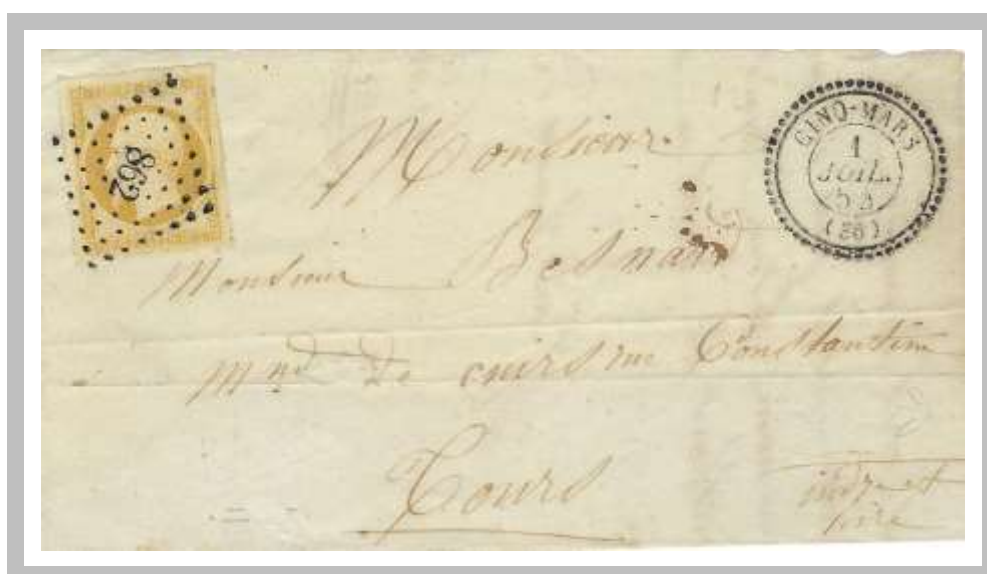 862
CINQ-MARS
1
JUIL.
(36)
Monsieur
Monsieur Besnard
Mnd De cuirs rue Constantine
Tours
indre et
loire